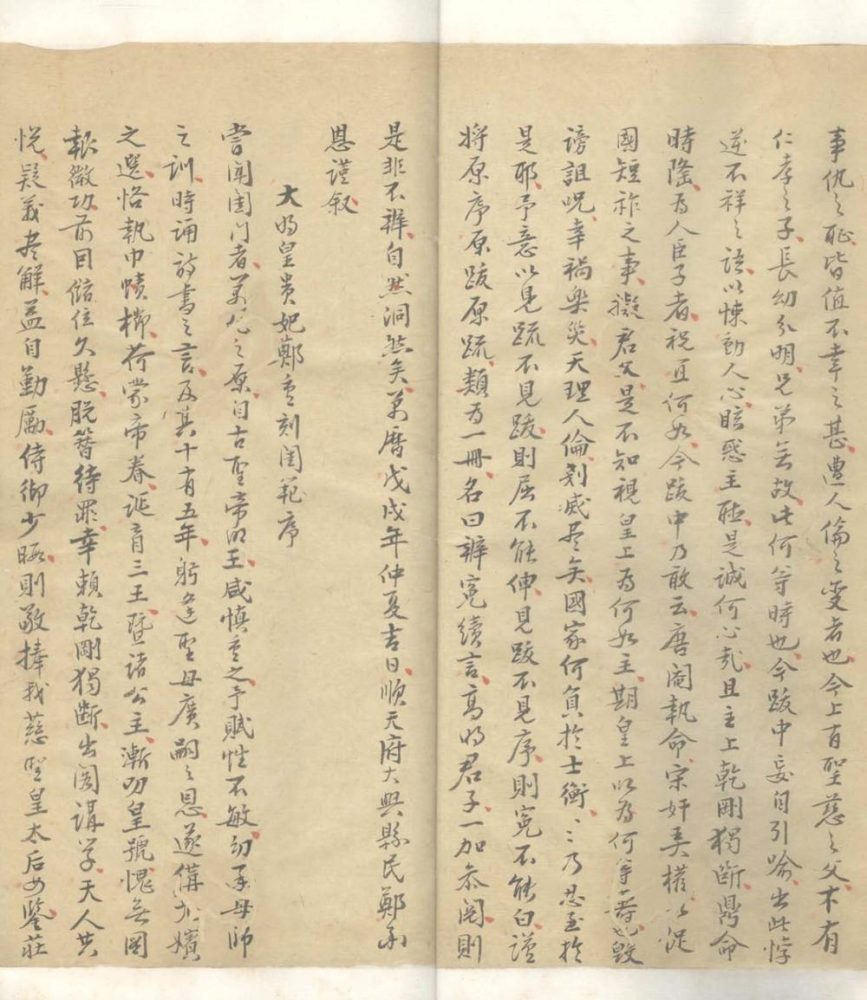 事仇之耻皆值不幸之甚遭人倫之變者也今上有聖慈之父下有
仁孝之子長幼分明兄弟無故此何等時也今跋中妄自引喻出此悖
逆不祥之語以悚動人心眩惑主聽是誠何心哉且主上乾剛獨斷鼎命
時隆為人臣子者祝宜何如今跋中乃敢云唐閹執命宋奸弄權以促
國短祚之事擬君父是不知視皇上為何如主期皇上以為何等毀
謗詛呪幸禍樂災天理人倫剝滅盡矣國家何負於士衡〻乃忍至於
是耶予意以見疏不見跋則屈不能伸見跋不見序則冤不能白謹
將原序原跋原疏類為一冊名曰辨冤續言高明君子一加叅閱則
是非不辨自然洞然矣萬曆戊戌年仲夏吉日順天府大興縣民鄭承
恩謹叙
大明皇貴妃鄭重刻閨範序
嘗聞閨門者萬化之原自古聖帝明王咸慎重之予賦性不敏幼承母師
之訓時誦詩書之言及其十有五年躬逢聖母廣嗣之恩遂備九嬪
之選恪執巾櫛荷蒙帝眷誕育三王暨諸公主漸叨皇號愧無圖
報微功前因儲位久懸脫簪待罪幸賴乾剛獨斷出閣講學天人共
悅疑義盡解益自勤勵侍御少暇則敬捧我慈聖皇太后女鑒莊